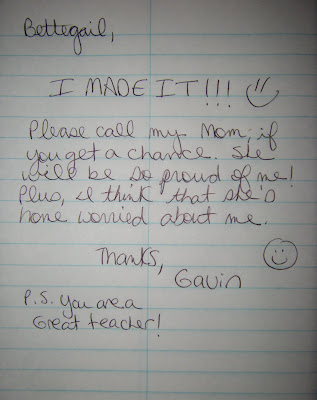 Bettegail,
I MADE IT!!!
Please call my Mom, if
you get a chance. She
will be so proud of me!
Plus, I think that she's
home worried about me.
Thanks,
Gavin
P.S. You are a
Great teacher!